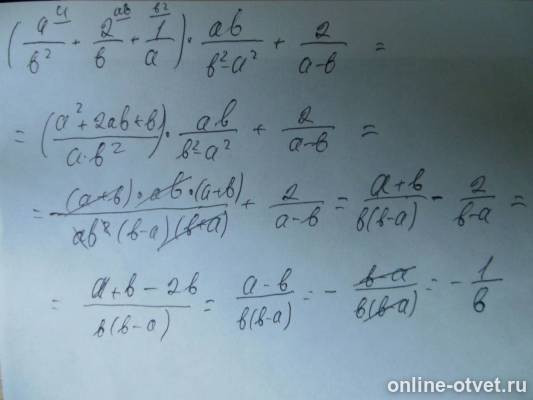 (a^a/b² + 2^ab/b + 1^b²/a) · ab/(b²-a²) + 2/(a-b) =
= ((a²+2ab+b)/(a·b²)) · ab/(b²-a²) + 2/(a-b) =
= ((a+b)·ab·(a+b))/(ab²(b-a)(b+a)) + 2/(a-b) = (a+b)/(b(b-a)) - 2/(b-a) =
= (a+b-2b)/(b(b-a)) = (a-b)/(b(b-a)) = - (b-a)/(b(b-a)) = - 1/b
online-otvet.ru